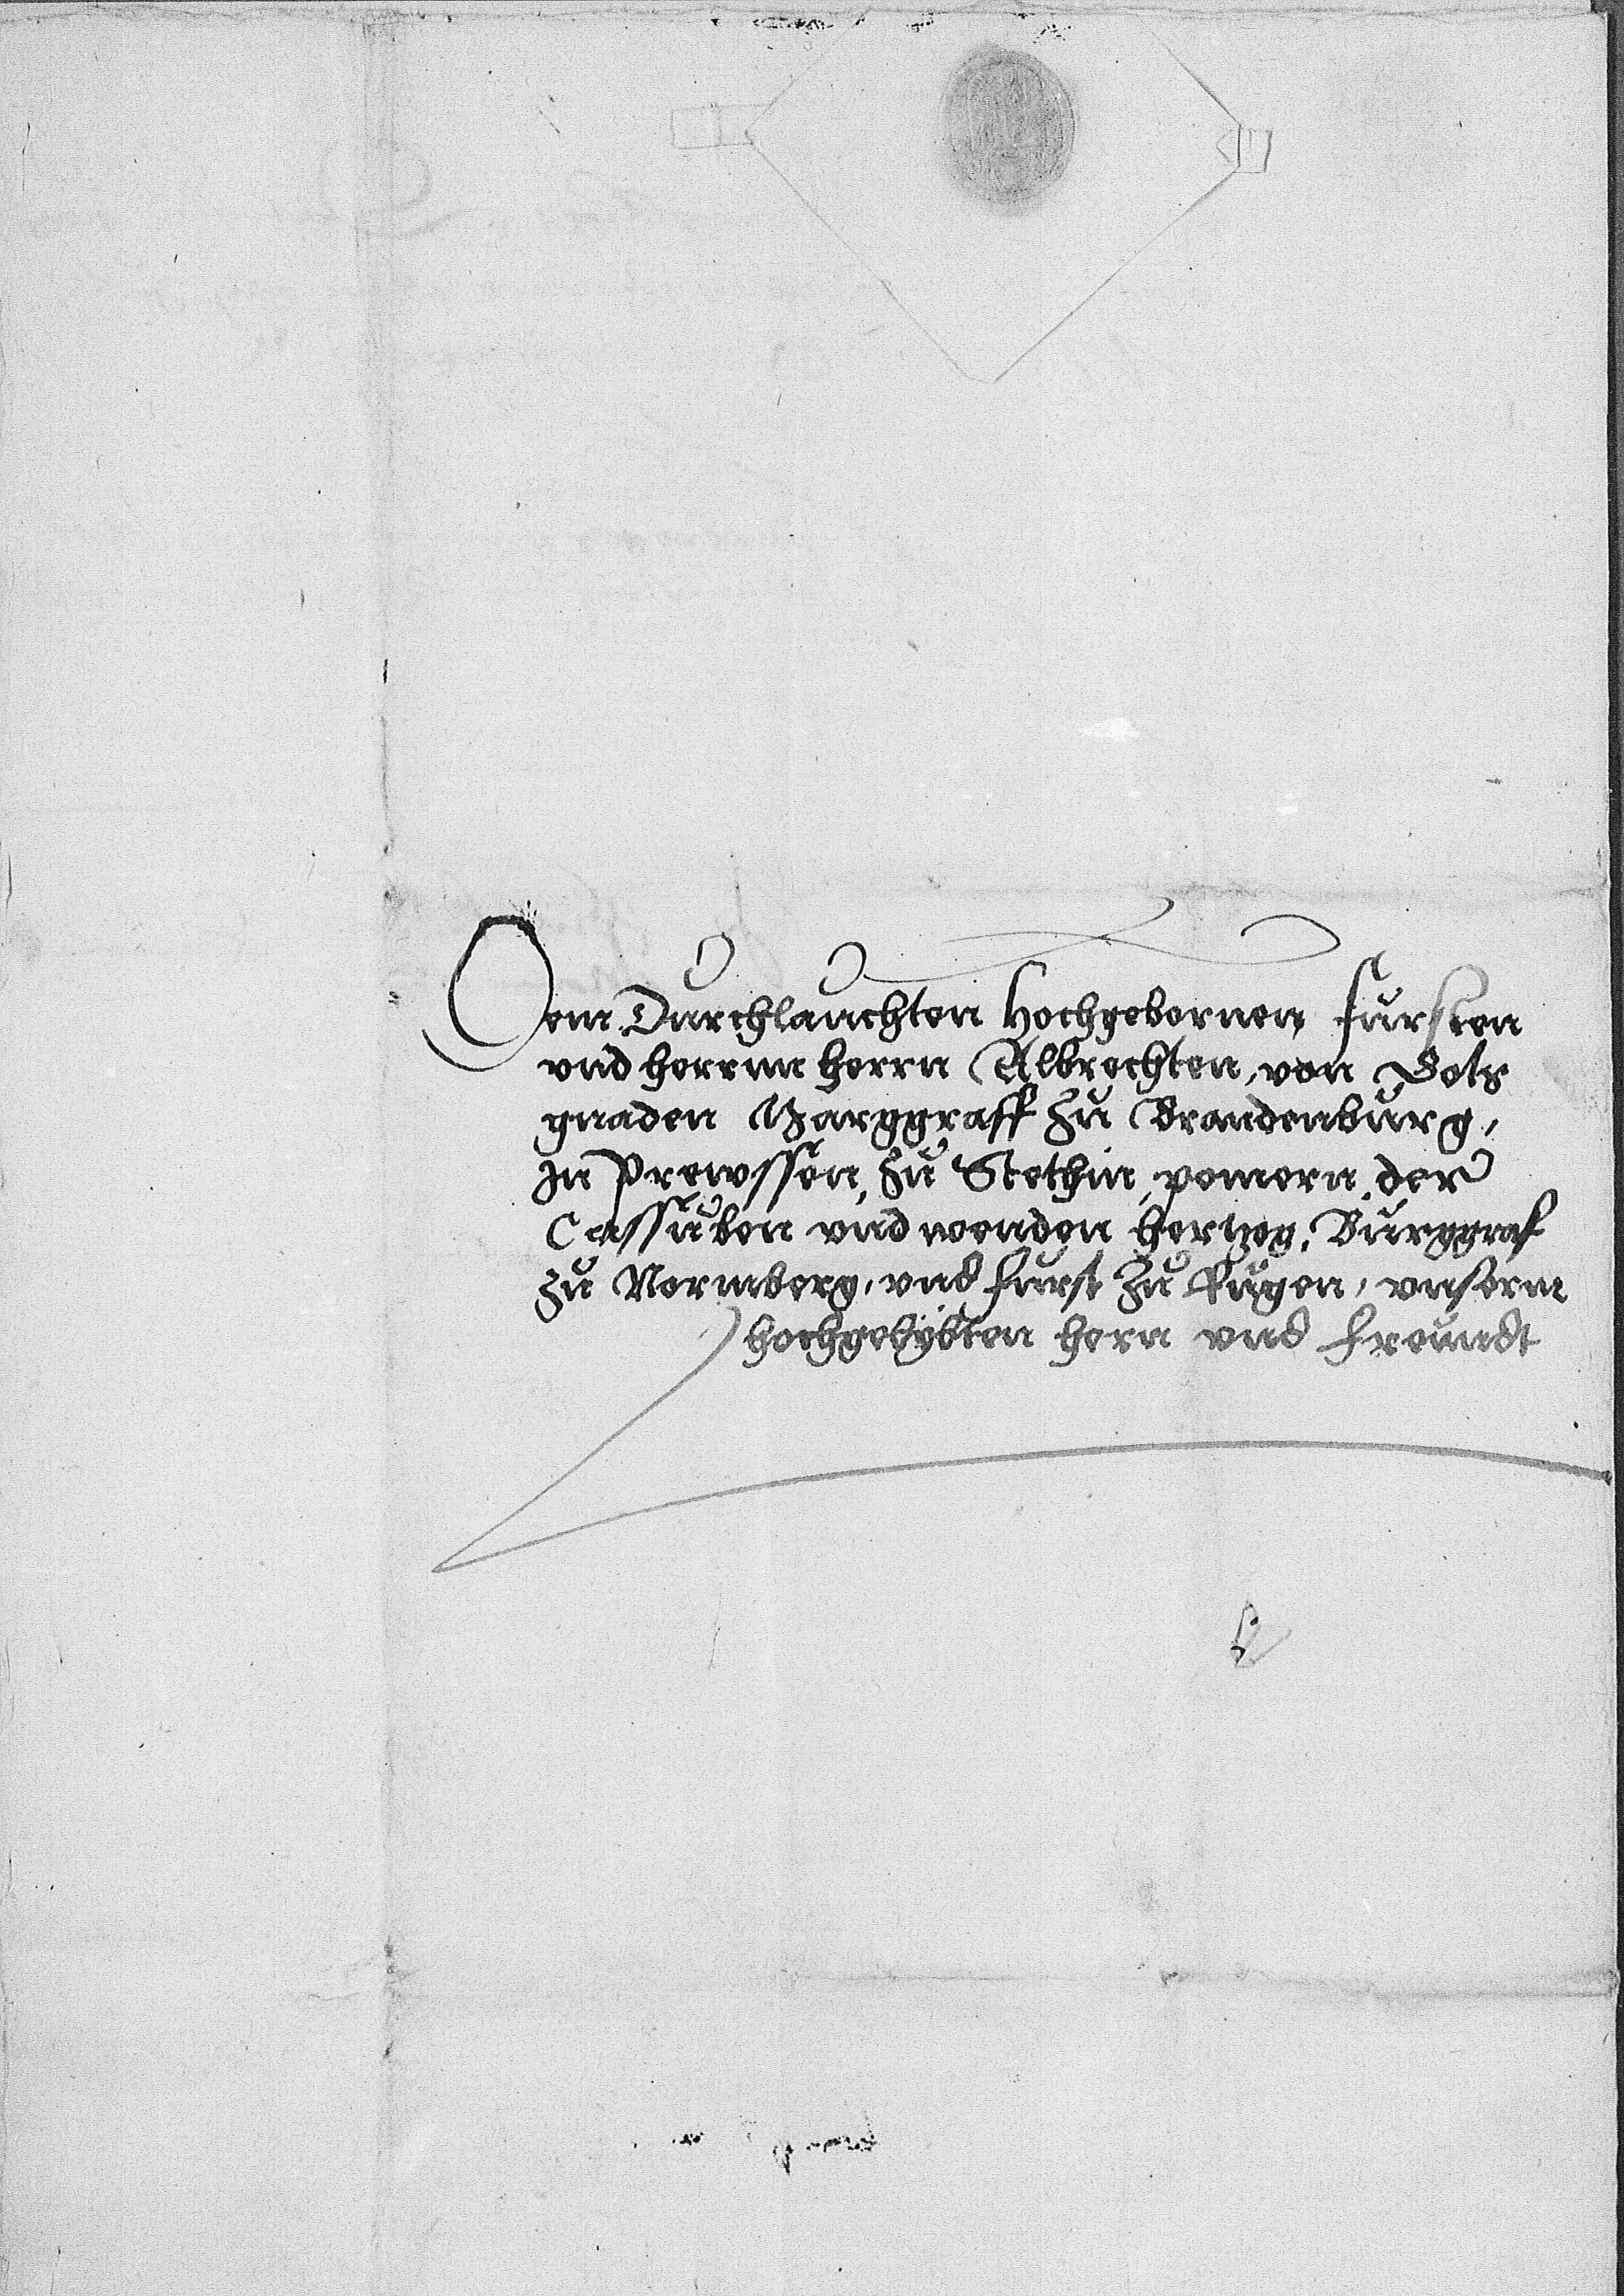 Dem Durchlauchten Hochgebornen fursten
vnd herrnn herrn Albrechten, von Gots
gnaden Marggraff zu Brandenburg,
In Prewssen, zu Stethin, pomern, der
Cassuben vnd wenden hertzog, Burggraf
zu Normberg, vnd furst zu Rugen, vnserm
hochgelybten hern vnd freundt